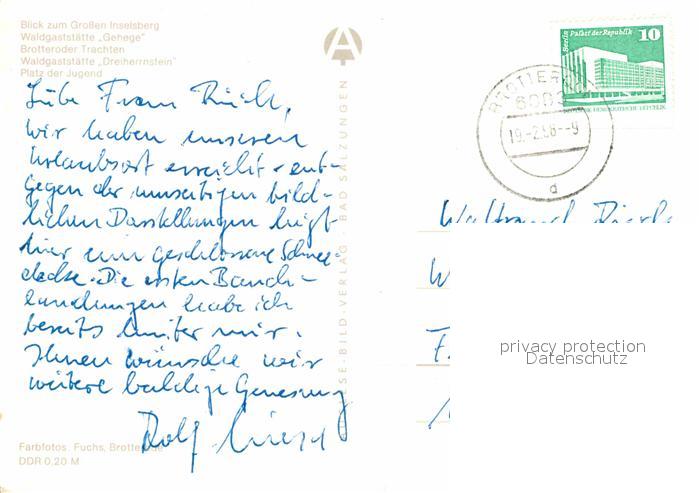 Blick zum Großen Inselsberg
Waldgaststätte „Gehege"
Brotteroder Trachten
Waldgaststätte „Dreiherrnstein"
Platz der Jugend
Liebe Frau
wir haben unseren
Urlaubsort erreicht - ent-
gegen der umseitigen bild-
lichen Darstellungen liegt
hier eine geschlossene Schnee-
decke. Die ersten Bauch-
landungen habe ich
bereits hinter mir.
Ihnen wünsche wir
weitere baldige Genesung
Rolf
Farbfotos: Fuchs, Brotterode
DDR 0,20 M
BILD-VERLAG · BAD SALZUNGEN
Berlin Palast der Republik
10
DEUTSCHE DEMOKRATISCHE REPUBLIK
19.-2.86--9
d
Waltraud
W
F.
privacy protection
Datenschutz